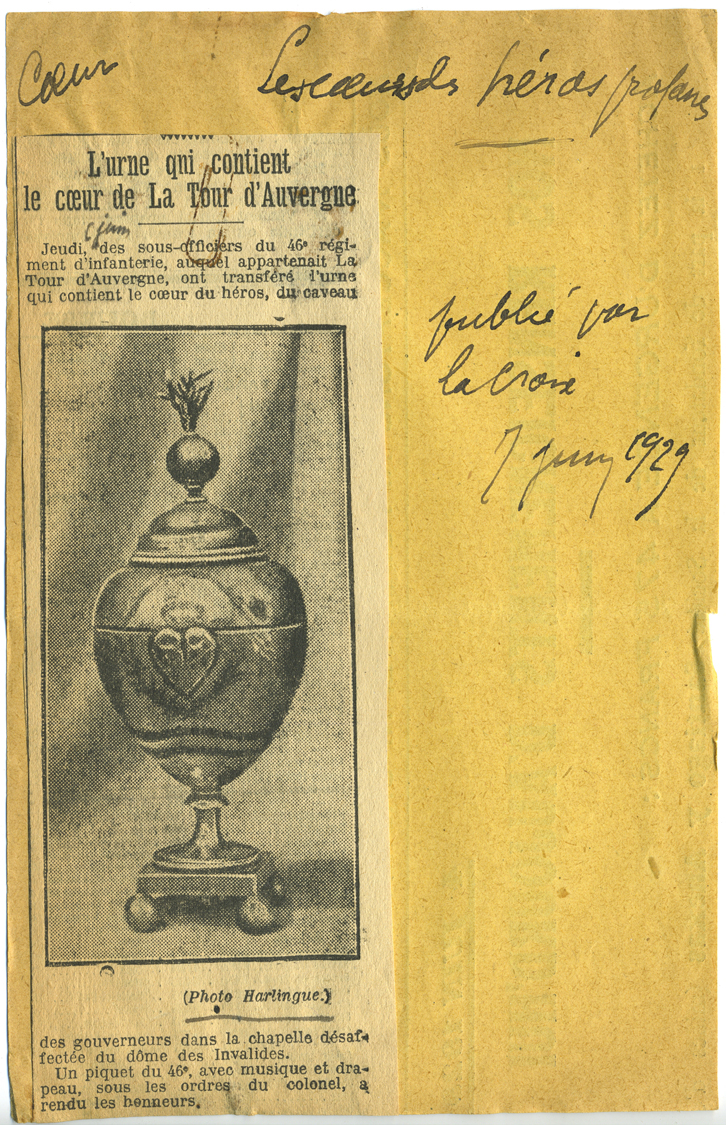 Cœur
Les cœurs des héros profanes
L'urne qui contient
le cœur de La Tour d'Auvergne
6 juin
Jeudi, des sous-officiers du 46e régi-
ment d'infanterie, auquel appartenait La
Tour d'Auvergne, ont transféré l'urne
qui contient le cœur du héros, du caveau
publié par
la Croix
7 juin 1929
(Photo Harlingue.)
des gouverneurs dans la chapelle désaf-
fectée du dôme des Invalides.
Un piquet du 46e, avec musique et dra-
peau, sous les ordres du colonel, a
rendu les honneurs.